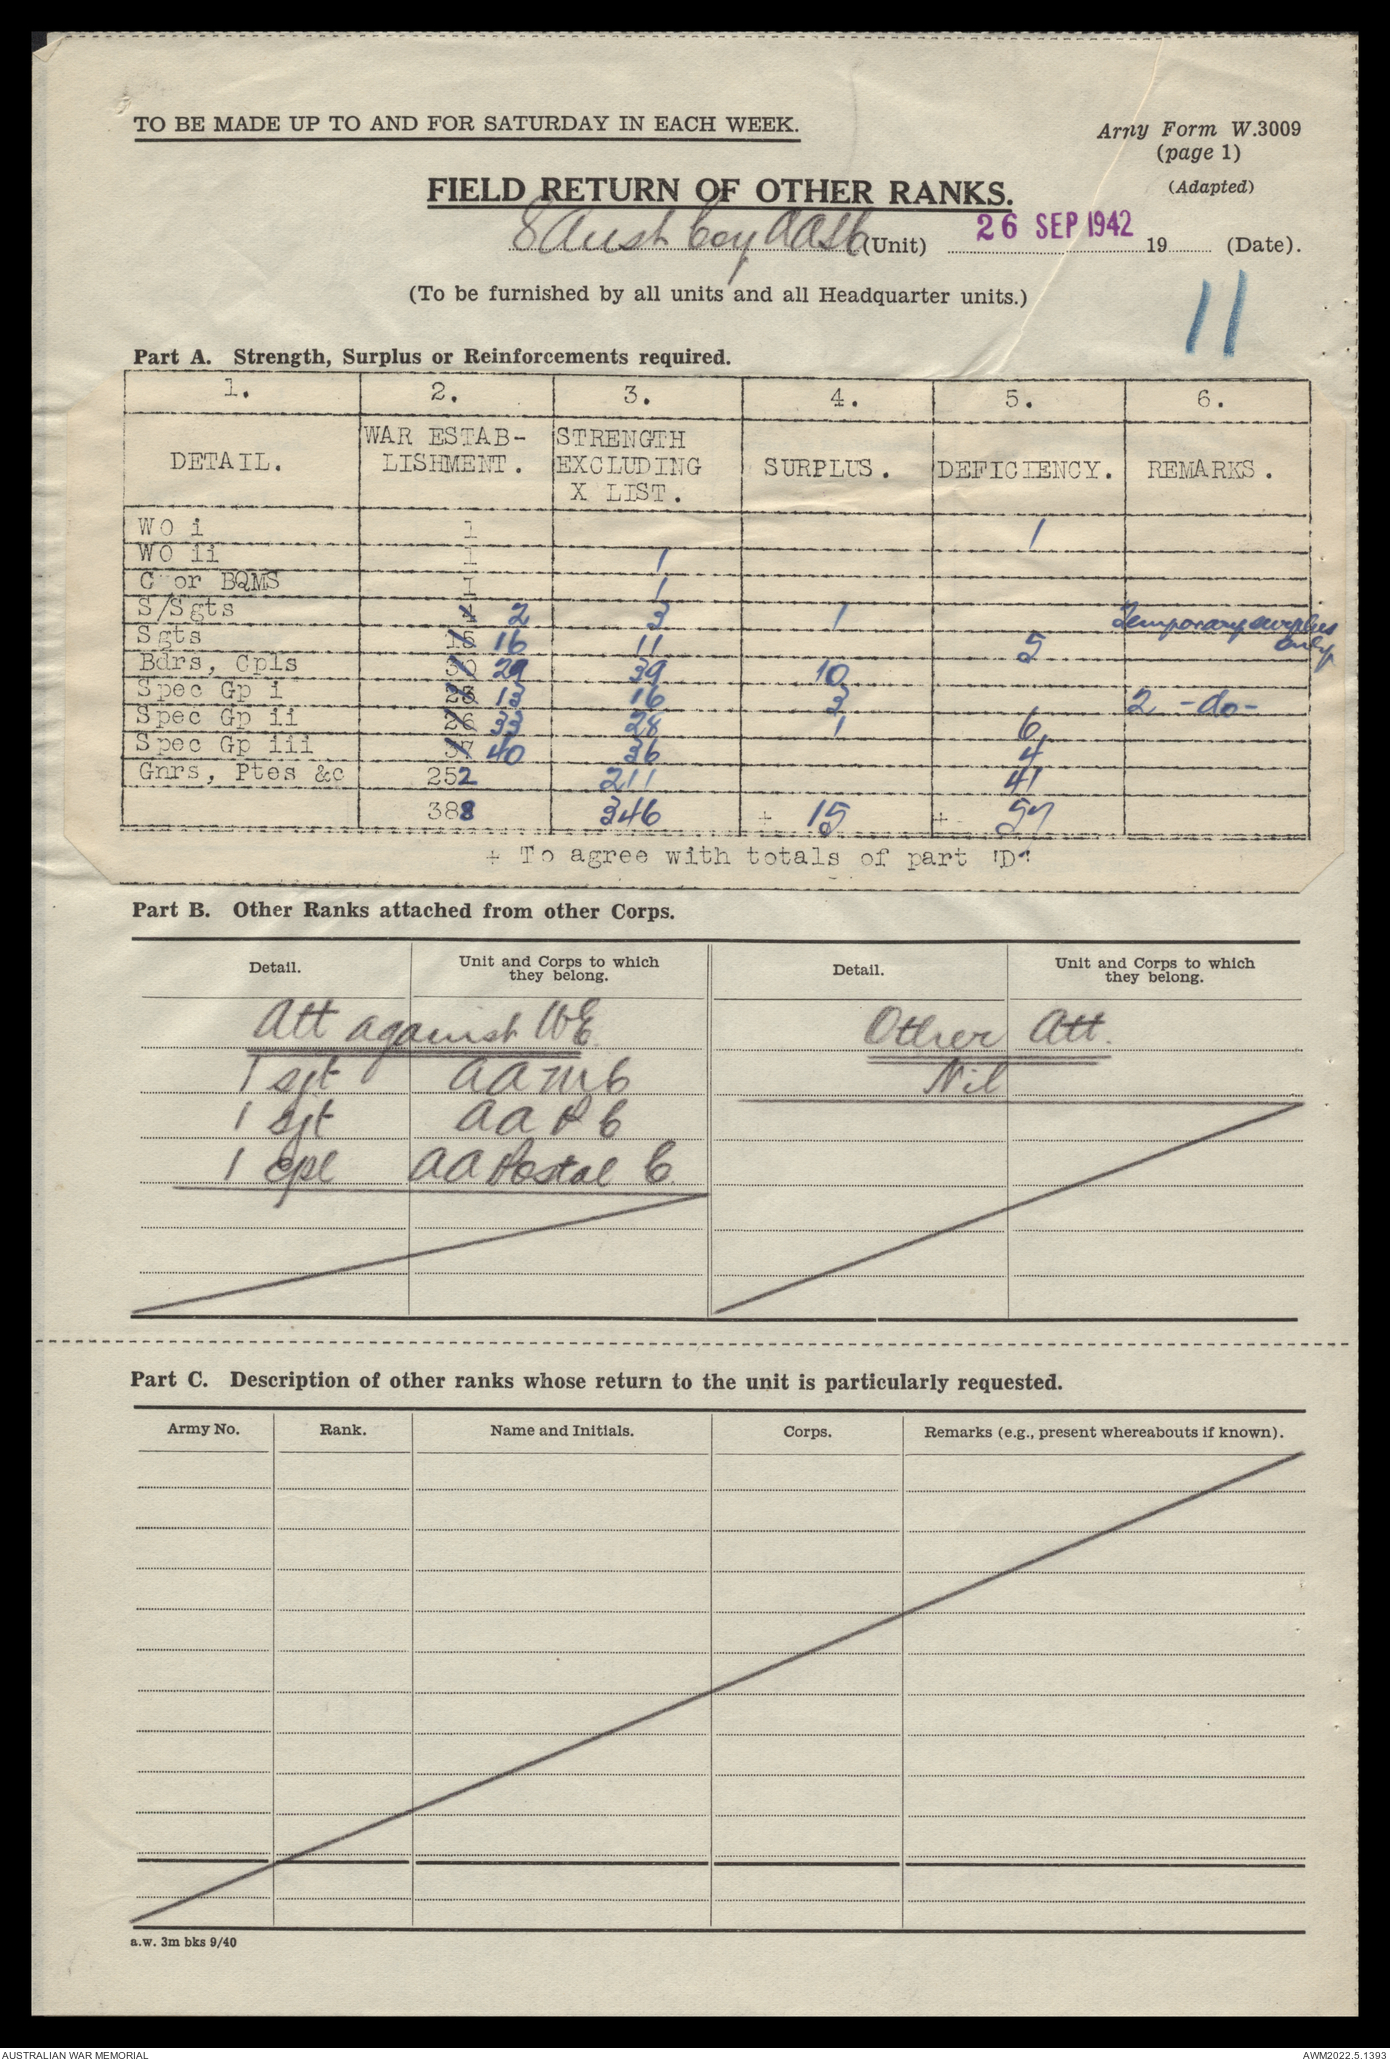 TO BE MADE UP TO AND FOR SATURDAY IN EACH WEEK.
Army Form W.3009
(page 1)
(Adapted)
FIELD RETURN OF OTHER RANKS.
8 Aust Coy AASC (Unit) 26 SEP 1942 19 (Date).
(To be furnished by all units and all Headquarter units.)
11
Part A. Strength, Surplus or Reinforcements required.
1. 2. 3. 4. 5. 6.
DETAIL. WAR ESTAB-LISHMENT. STRENGTH EXCLUDING X LIST. SURPLUS. DEFICIENCY. REMARKS.
WO i 1 1
WO ii 1 1
C or BQMS 1 1
S/Sgts 2 3 1 Temporary surplus only
Sgts 16 11 5
Bdrs, Cpls 29 39 10
Spec Gp i 13 16 3 2 -do-
Spec Gp ii 33 28 1 6
Spec Gp iii 37 40 36 4
Gnrs, Ptes &c 252 211 41
388 346 + 15 + 57
+ To agree with totals of part 'D'
Part B. Other Ranks attached from other Corps.
Detail. Unit and Corps to which they belong. Detail. Unit and Corps to which they belong.
Att against WE Other Att.
1 sjt AAMC Nil
1 sjt AAPC
1 cpl AA Postal C
Part C. Description of other ranks whose return to the unit is particularly requested.
Army No. Rank. Name and Initials. Corps. Remarks (e.g., present whereabouts if known).
a.w. 3m bks 9/40
AUSTRALIAN WAR MEMORIAL
AWM2022.5.1393